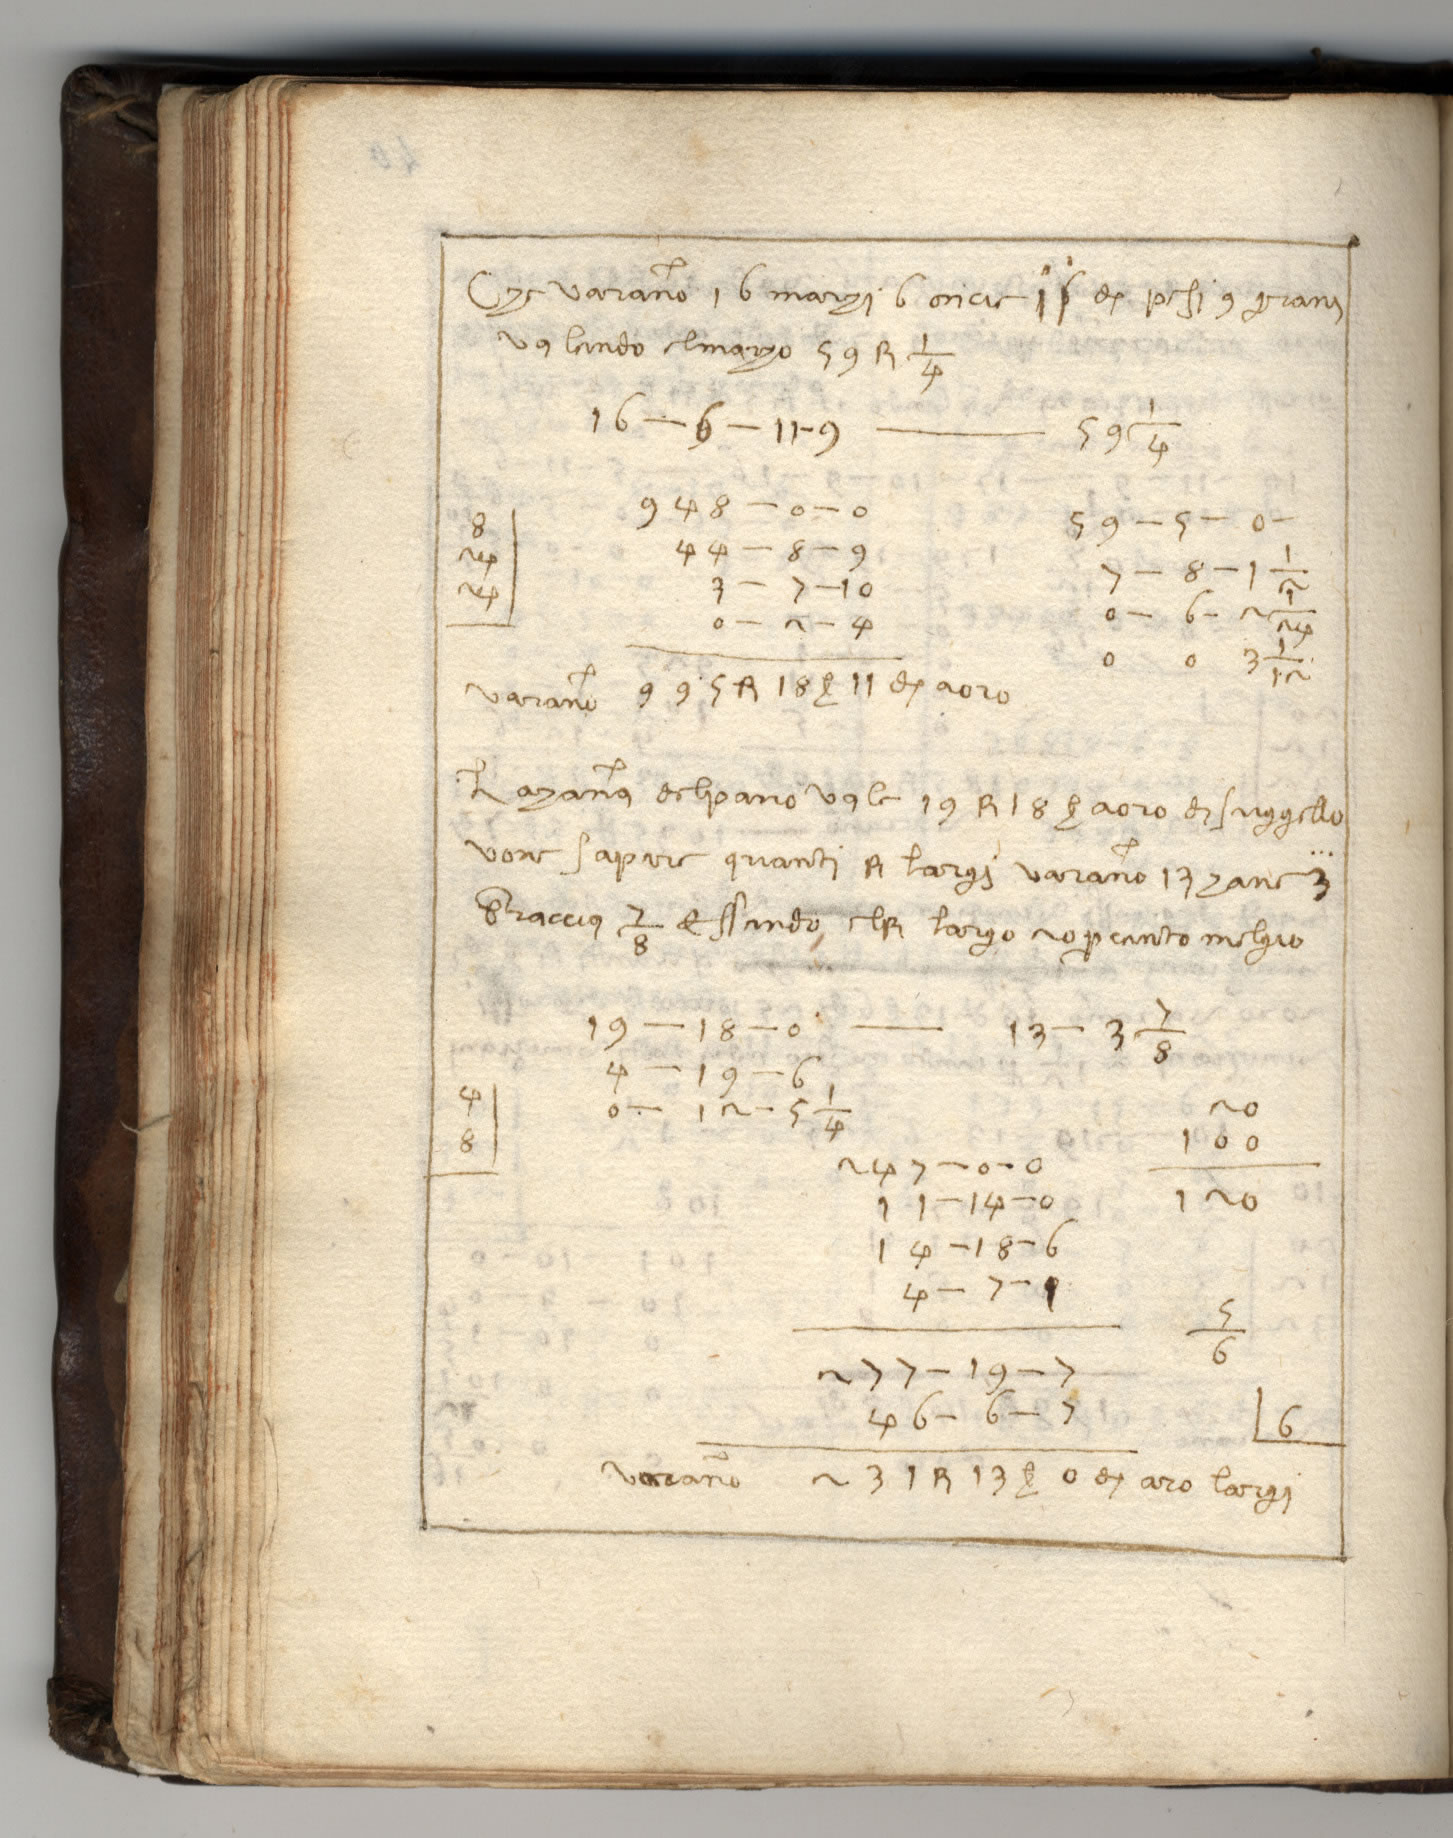 Che varano 16 marchi 6 oncie 11 d pesi 9 grani
valendo elmarcho 59 R 1/4
16 — 6 — 11 - 9 ——— 59 1/4
948 — 0 — 0
59 — 5 — 0 -
8
44 — 8 — 9
7 — 8 — 1 1/2
24
3 — 7 — 10
0 — 6 - 2 1/24
24
0 — 2 — 4
0 0 3 1/12
varano 995 R 18 ß 11 d aoro
La channa delpano vale 19 R 18 ß aoro di suggello
vone sapere quanti R largi varano 13 channe 3
Braccia 7/8 essendo elR largo 20 p cento meglio
19 — 18 — 0 —— 13 — 3 7/8
4 — 19 — 6
4
0 — 12 — 5 1/4
20
8
100
247 — 0 — 0
11 — 14 — 0
120
14 — 18 — 6
4 — 7 — 1
5/6
277 — 19 — 7
46 — 6 — 7
6
varano 231 R 13 ß 0 d aro largi